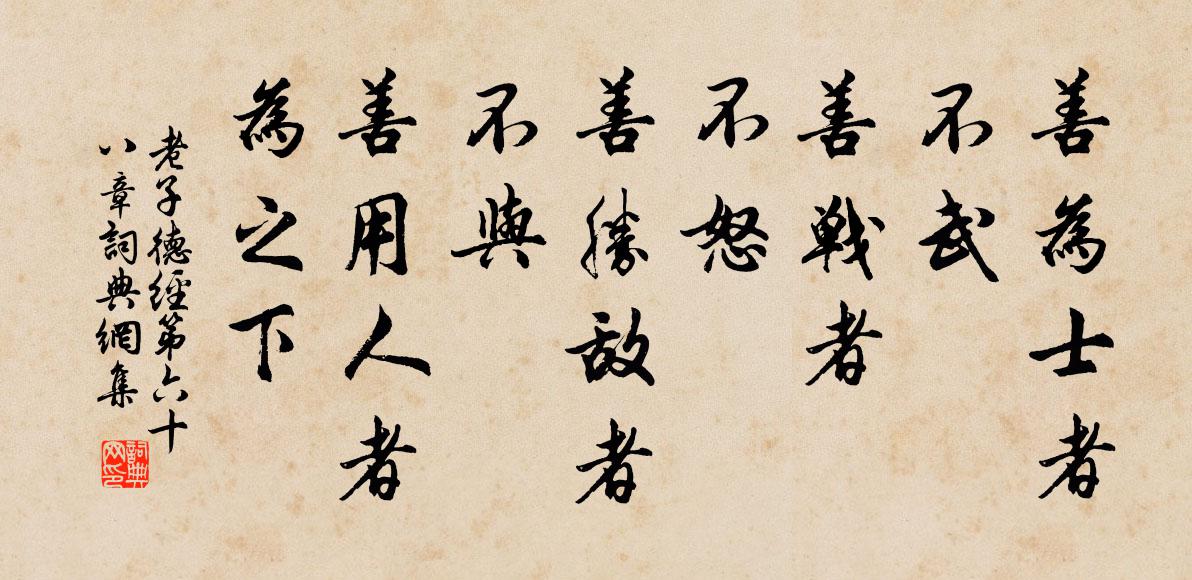 善為士者
不武
善戰者
不怒
善勝敵者
不與
善用人者
為之下
老子德經第六十
八章詞典網集
詞典
网印